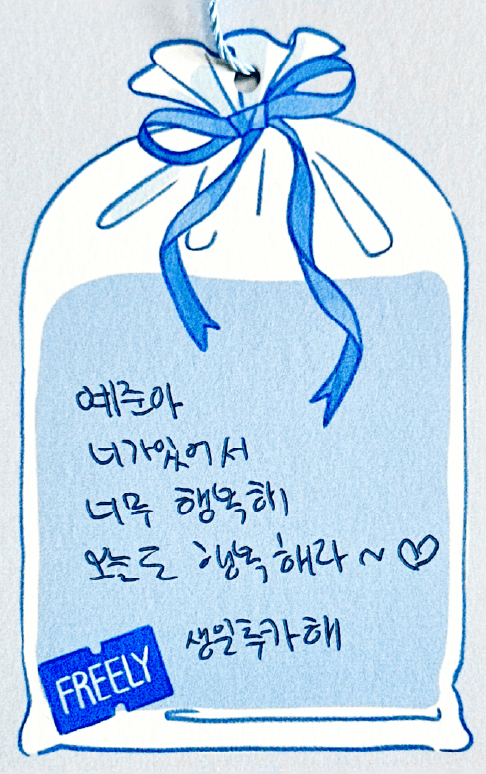 예준아
너가있어서
너무 행복해
오늘도 행복해라 ~ ♡
생일축하해
FREELY